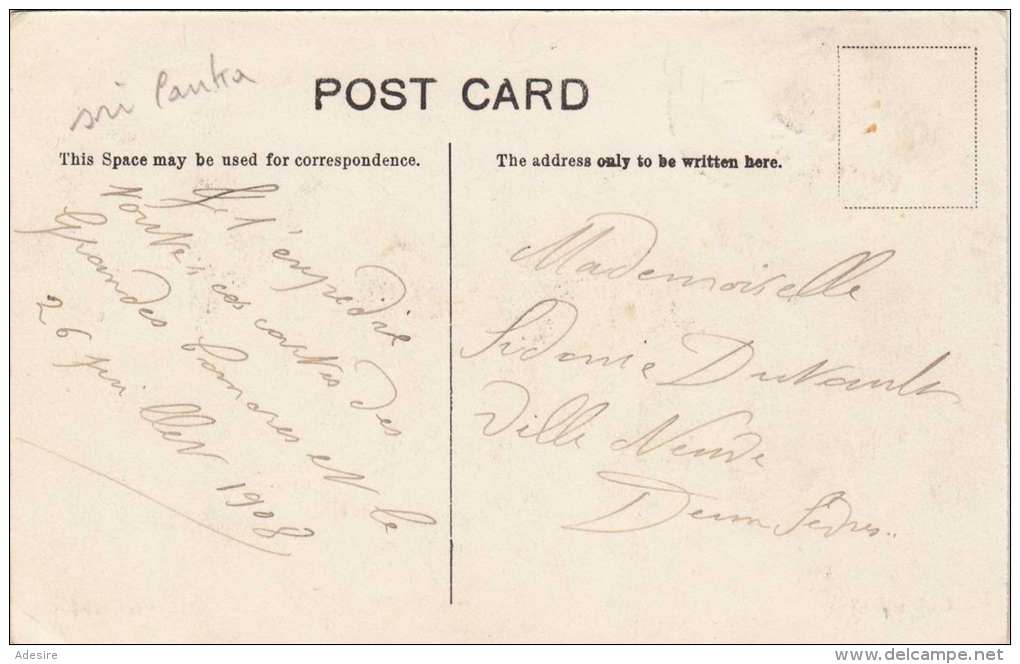 sri Lanka
POST CARD
This Space may be used for correspondence.
The address only to be written here.
Je t'expédie
toutes ces cartes des
Grandes Comores et le
26 juillet 1908
Mademoiselle
Sidonie
Ville Neuve
Deux Sèvres..
Adesire
www.delcampe.net